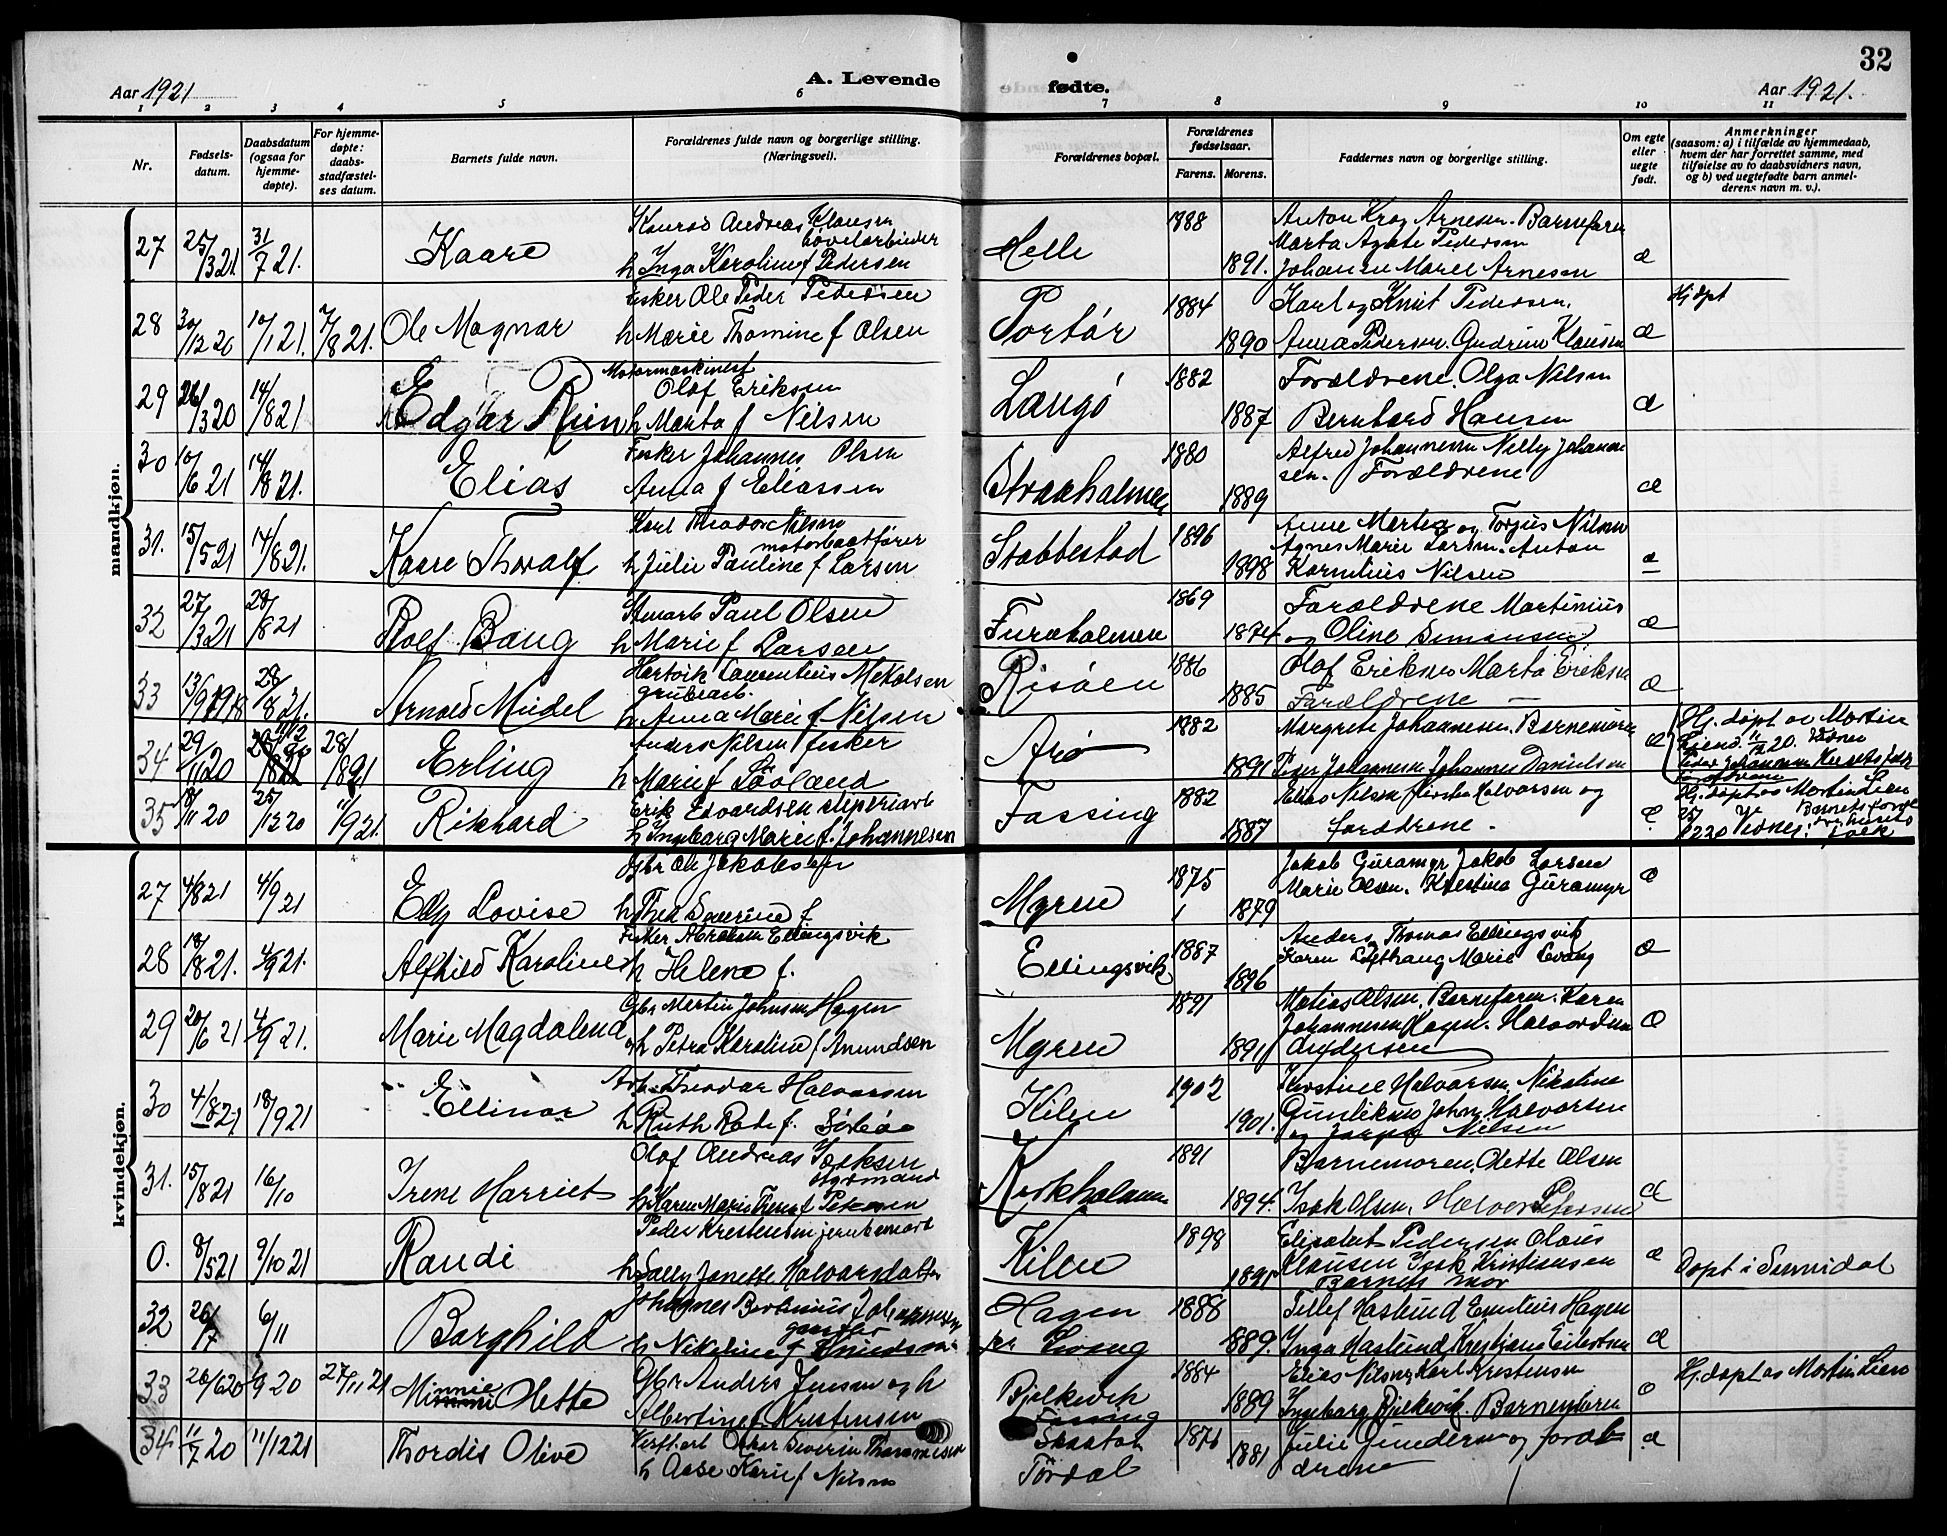 32
Aar 1921
A. Levende
fødte.
Aar 1921.
1 2 3 4 5 6 7 8 9 10 11
Nr.
Fødsels-
datum.
Daabsdatum
(ogsaa for
hjemme-
døpte).
For hjemme-
døpte:
daabs-
stadfæstel-
ses datum.
Barnets fulde navn.
Forældrenes fulde navn og borgerlige stilling.
(Næringsvei).
Forældrenes bopæl.
Forældrenes
fødselsaar.
Farens. Morens.
Faddernes navn og borgerlige stilling.
Om egte
eller
uegte
født.
Anmerkninger
(saasom: a) i tilfælde av hjemmedaab,
hvem der har forrettet samme, med
tilføielse av to daabsvidners navn,
og b) ved uegtefødte barn anmel-
derens navn m. v.).
mandkjøn.
27 25/3 21 31/7 21. Kaare
Konrad Andreas Klausen
h Inga Karoline f Pedersen
Helle 1888 1891.
Anton Krog Arnesen. Barnefaren
Marta Agate Pedersen
Johanne Marie Arnesen
æ
28 30/12 20 10/1 21. 7/8 21. Ole Magnar
Fisker Ole Peder Pedersen
h Marie Thomine f Olsen
Portør 1884 1890
Karl og Knut Pedersen.
Anna Pedersen. Gudrun Klausen
æ Hj døpt
29 26/3 20 14/8 21 Edgar
Motormaskinist
Olaf Eriksen
h Marta f Nilsen
Langø 1882 1887
Forældrene. Olga Nilsen
Bernhard Hansen
æ
30 10/6 21 14/8 21. Elias
Fisker Johannes Olsen
Anna f Eliassen
1880 1889
Alfred Johannesen Nelly Johanne
sen. Forældrene
æ
31. 15/5 21 14/8 21. Kaare Thoralf
Karl Theodor Nilsen
motorbaatfører
h Julie Pauline f Larsen
Stabbestad 1896 1898
Anne Marte og Torjus Nilsen
Agnes Marie Larsen. Anton
Kornelius Nilsen
æ
32 27/3 21 28/8 21 Rolf Bang
Paul Olsen
h Marie f Larsen
Furuholmen 1869 1874
Forældrene Martinius
og Oline Simonsen
æ
33 13/9 1918 28/8 21. Arnold
Laurentius Mikalsen
grubearb.
h Anna Marie f Nilsen
Risøen 1886 1885
Olaf Eriksen Marta Eriksen
Forældrene
æ
34 29/11 20 28/8 21 Erling
Anders Nilsen fisker
h Marie f
Arø 1882 1891
Margrete Johannesen. Barnemoren
Peder Johannesen Johannes Danielsen
æ Hj. døpt av Martin
Liend. 11/12 20. Vidner
Peder Johannesen Husets folk
35 18/11 20 25/12 20 11/9 21. Rikhard
Erik Edvardsen
h Ingeborg Marie f. Johannesen
Fossing 1882 1887
Elias Nilsen Halvorsen og
forældrene.
Hj. døpt av Martin Lien
Vidner: Barnets forældre
folk
kvindekjøn.
27 4/8 21 4/9 21 Elly Lovise
Gbr Ole Jakobsen
h Thea Severine f
Myren 1875 1879
Jakob Jakob Larsen
Marie Olsen. Kristina
æ
28 18/8 21. 4/9 21. Alfhild Karoline
Fisker Abraham Ellingsvik
h Helene f.
Ellingsvik 1887 1896
Anders Thomas Ellingsvik
Karen Lofthaug Marie Levang
æ
29 20/6 21 4/9 21. Marie Magdalena
Gbr Martin Johnsen Hagen
h Petra Karoline f Amundsen
Myren 1891 1891
Matias Olsen, Barnefaren. Karen
Johannesen Hagen. Halvord
Andersen
æ
30 4/8 21 18/9 21 Ellinor
Arb. Theodor Halvorsen
h Ruth f.
Kilen 1902 1901.
Kirstine Halvorsen, Nikoline
Gunleiksen Johan Halvorsen
og Nilsen
31. 15/8 21 16/10 Irene Harriet
Olaf Andreas Isaksen
styrmand
h Karen Marie f Petersen
Kirkholmen 1891 1894.
Barnemoren. Dette Olsen
Isak Olsen. Halvor Petersen
æ
0. 8/5 21 9/10 21 Randi
Peder Kristensen
h Sally Janette Halvorsdatter
Kilen 1898
Elisabet Pedersen Olaus
Klausen Isak Kristiensen
Barnets mor
æ Døpt i Sannidal
32 26/7 6/11 Borghild
Johannes Johannesen
h Nikoline f Knudsen
Hagen
Levang 1888 1889.
Tellef Haslund Emilius Hagen
Inga Haslund Kristiane Eilertsen
æ
33 26/6 20 /9 20 27/11 21 Minnie Dette
Gbr Anders Jensen og h
Albertine f. Kristensen
Bjelkevik
Fossing 1884 1889
Elias Nilsen Karl Kristensen
Ingeborg Bjelkevik. Barnefaren
Hj. døpt av Martin Lien
34 11/7 20 11/12 21 Thordis Olive
Oskar Severin Thommesen
h Aase Karine f Nilsen
Tørdal 1876 1881
Julie Gundersen og foræl
drene
æ